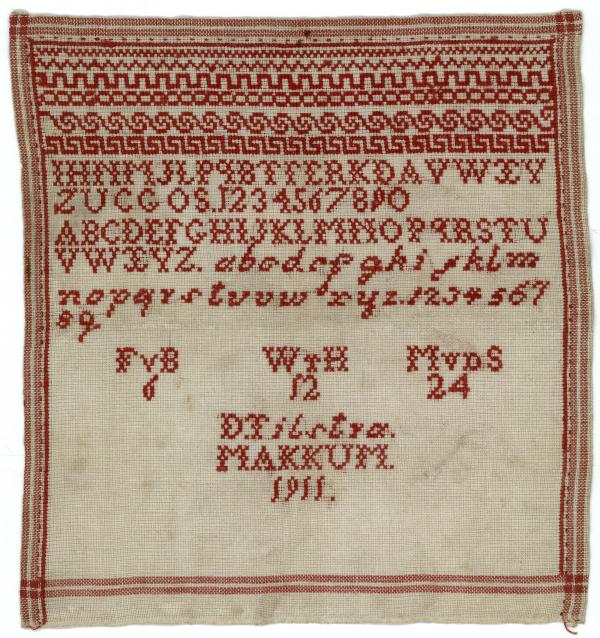 IHNMJLPqBTFERKDAVWXY
ZUCGOS.1234567890
ABCDEFGHIJKLMNOPqRSTU
VWXYZ. abcdefghijklm
nopqrstuvwxyz.1234567
89.
FvB WvH MvdS
6 12 24
D.Tilstra.
MAKKUM.
1911.